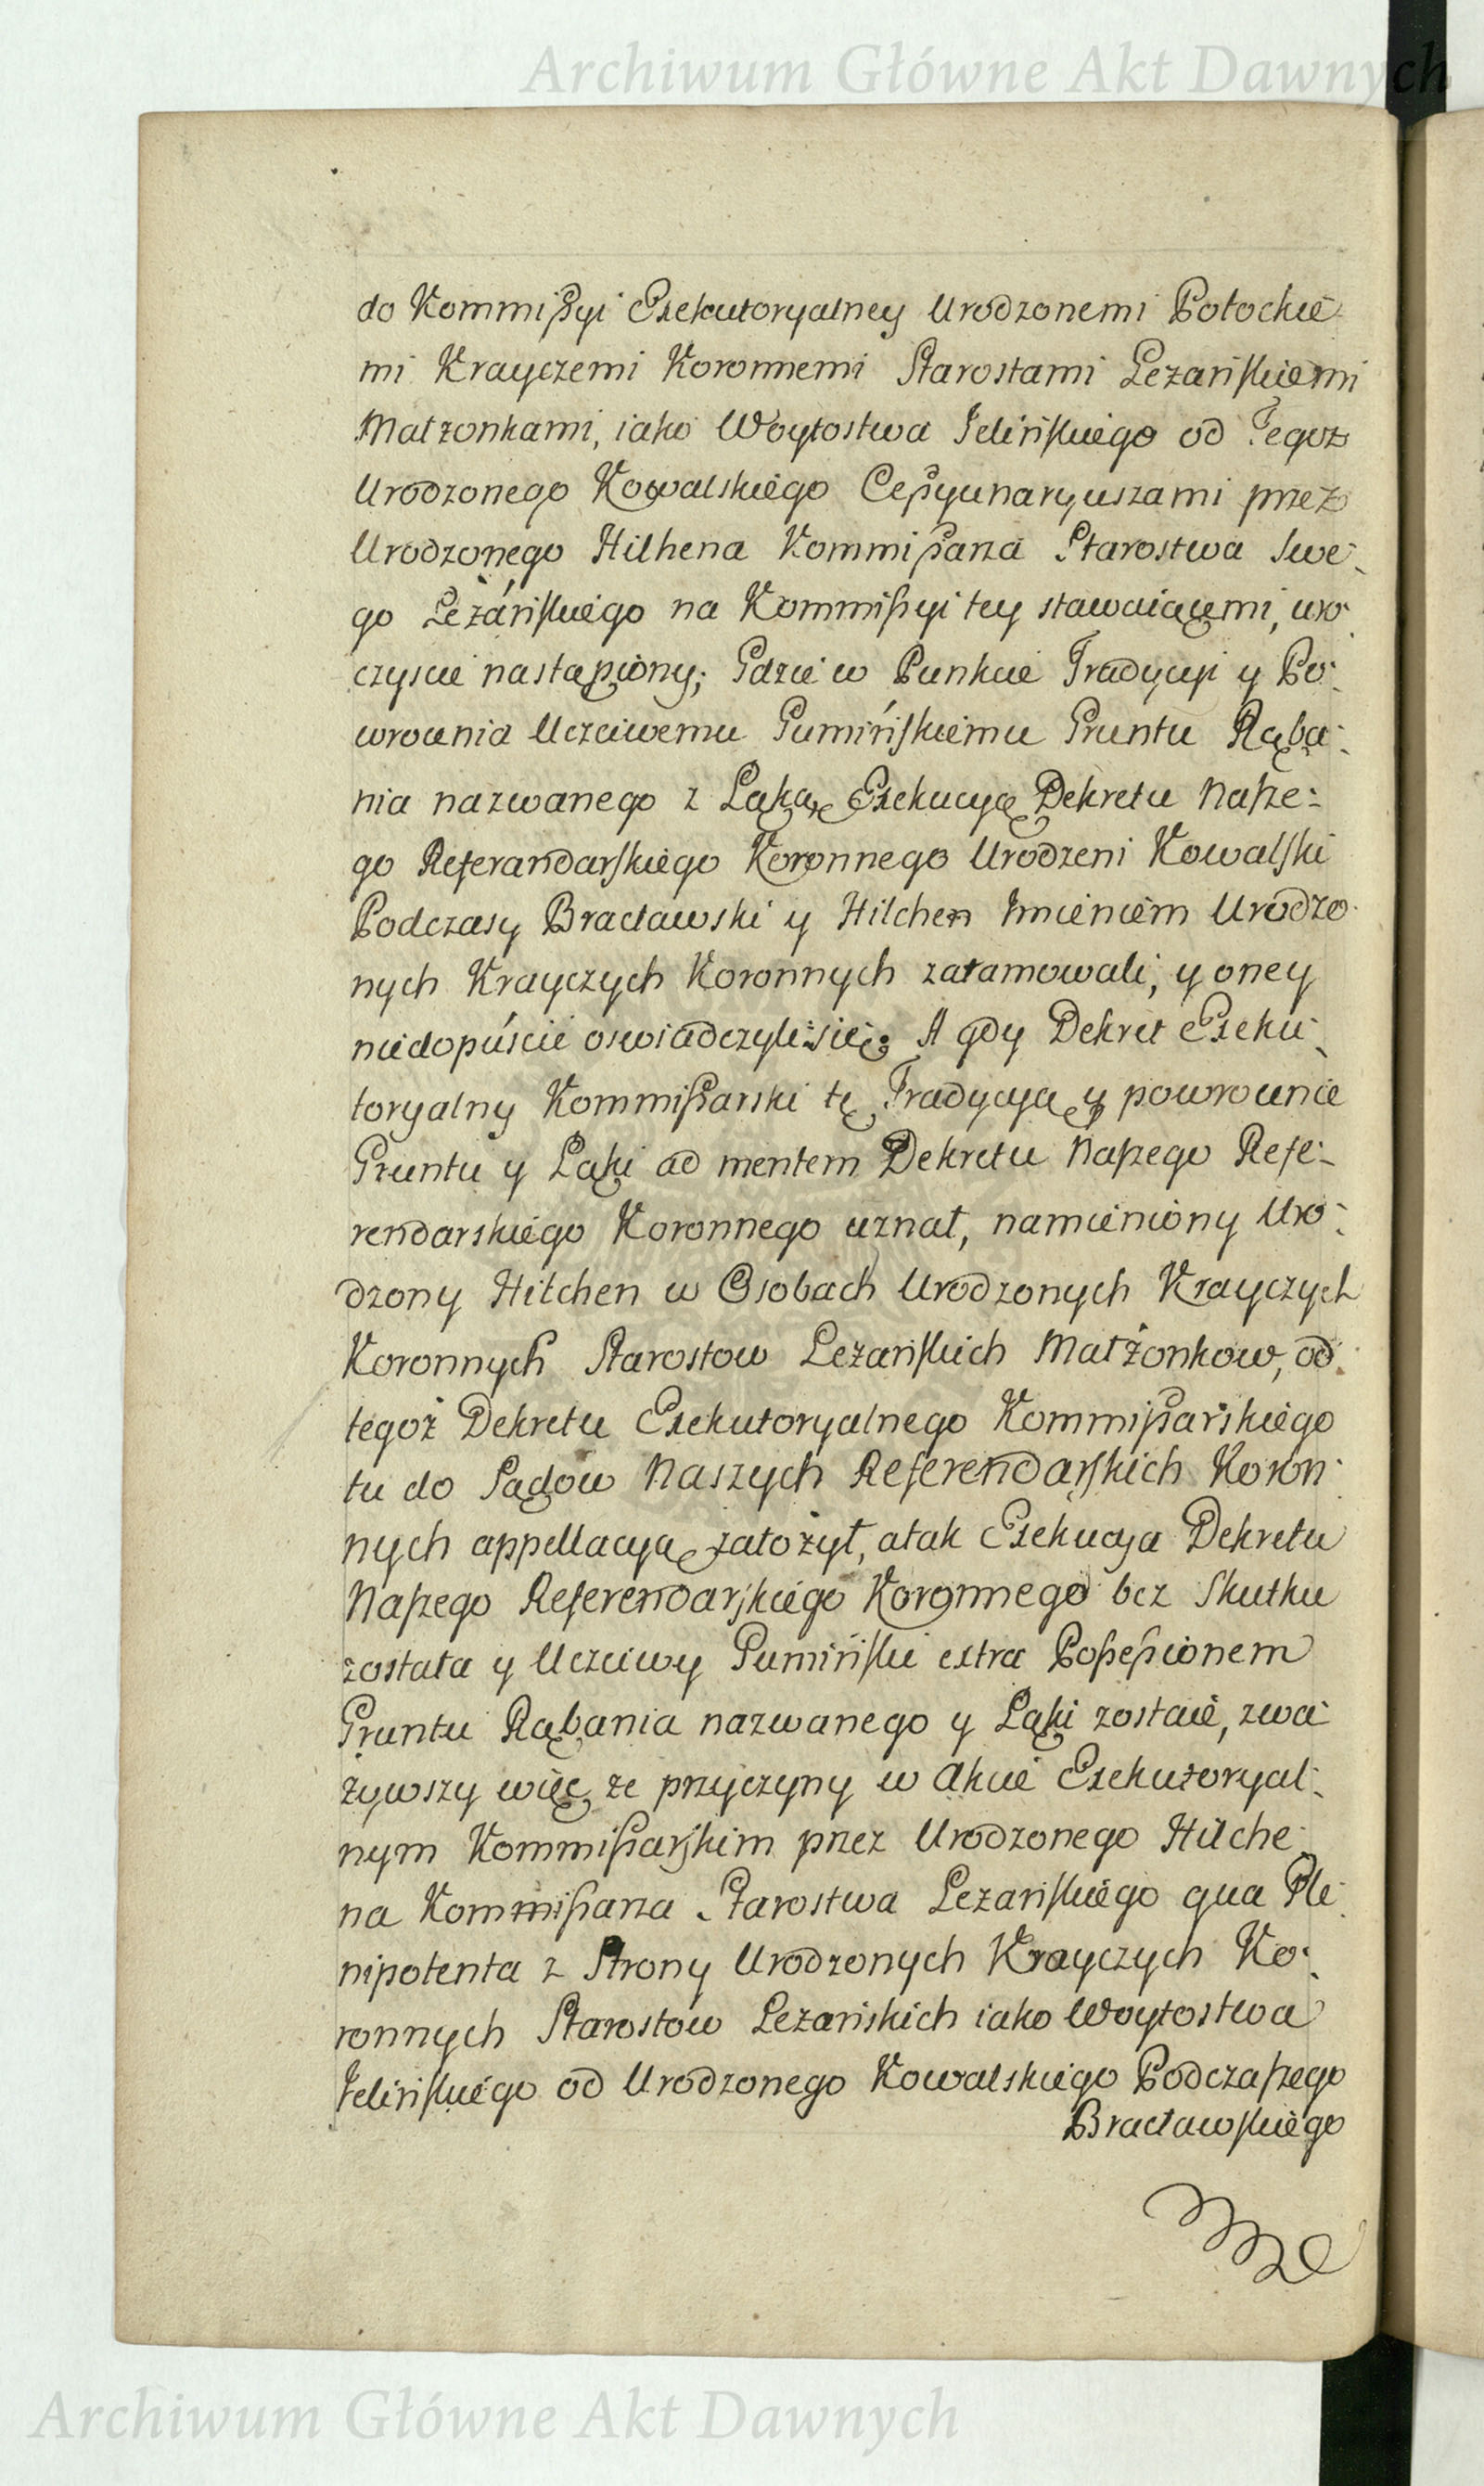 Archiwum Główne Akt Dawnych
do Kommißyi Exekutoryalney Urodzonemi Potockie
mi Krayczemi Koronnemi Starostami Leżańskiemi
Małzonkami, iako Woytostwa Jelińskiego od Tegoz
Urodzonego Kowalskiego Ceßyunaryuszami przez
Urodzonego Hilhena Kommißarza Starostwa Swe-
go Leżáńskiego na Kommißyi tey stawaiącemi, uro-
czyscie nastąpiony; Gdzie w Punkcie Tradycyi y Po-
wrocenia Uczciwemu Gumińskiemu Gruntu Rąba-
nia nazwanego z Łąką, Exekucyę Dekretu Naße-
go Referandarskiego Koronnego Urodzeni Kowalski
Podczasy Bracławski y Hilchen Imieniem Urodzo-
nych Krayczych Koronnych zatamowali, y oney
niedopuścić oswiadczyli się; A gdy Dekret Exeku-
toryalny Kommißarski tę Tradycyą y powrocenie
Gruntu y Łąki ad mentem Dekretu Naßego Refe-
rendarskiego Koronnego uznał, namieniony Uro-
dzony Hilchen w Osobach Urodzonych Krayczych
Koronnych Starostow Leżańskich Małżonkow, od
tegoż Dekretu Exekutoryalnego Kommißarskiego
tu do Sądow Naszych Referendarskich Koron-
nych appellacyą założył, a tak Exekucya Dekretu
Naßego Referendarskiego Koronnego bez Skutku
została y Uczciwy Gumiński extra Poßeßionem
Gruntu Rąbania nazwanego y Łąki zostaie, zwa-
żywszy więc ze przyczyny w Akcie Exekutoryal-
nym Kommißarskim przez Urodzonego Hilche-
na Kommißarza Starostwa Leżańskiego qua Ple-
nipotenta z Strony Urodzonych Krayczych Ko-
ronnych Starostow Leżańskich iako Woytostwa
Jelińskiego od Urodzonego Kowalskiego Podczaßego
Bracławskiego
Archiwum Główne Akt Dawnych